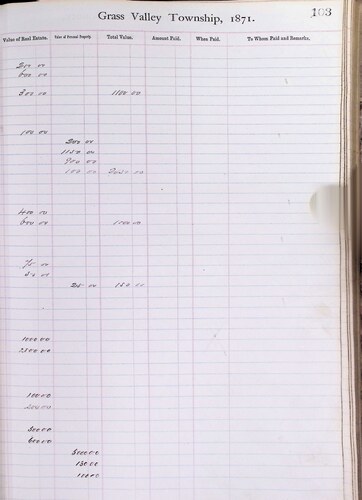 103
Grass Valley Township, 1871.
Value of Real Estate. Value of Personal Property. Total Value. Amount Paid. When Paid. To Whom Paid and Remarks.
200 00
600 00
300 00 1100 00
100 00
200 00
1150 00
900 00
100 00
400 00
600 00
75 00
50 00
25 00 150 00
1000 00
2500 00
100 00
200 00
500 00
600 00
5000 00
150 00
100 00